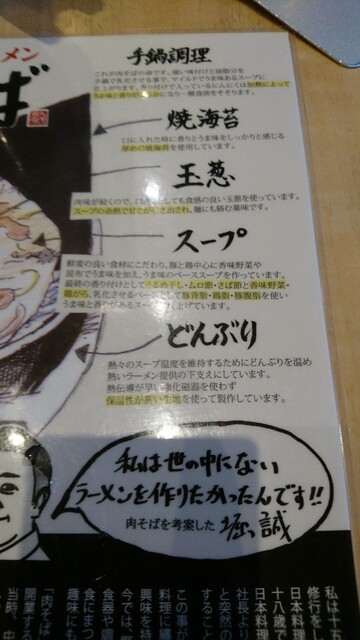 メン
ば
手鍋調理
これが肉そばの命です。強い味付けと油脂分を
手鍋で乳化させる事で、マイルドでうま味あるスープに
仕上がります。香り付けで入っているにんにくは加熱によって
うま味と香りが
になり一層食欲をそそります。
焼海苔
口に入れた時に香りとうま味をしっかりと感じる
厚めの焼海苔を使用しています。
玉葱
肉味が続くので、口
しても食感の良い玉葱を使っています。
スープの余熱で甘さが引き出され、麺にも絡む薬味です。
スープ
鮮度の良い食材にこだわり、豚と鶏中心に香味野菜や
昆布でうま味を加え、うま味のベーススープを作っています。
最終の香り付けとしてうるめ干し・ムロ節・さば節と香味野菜・
鶏がら、乳化させるベースとして豚背脂・鶏脂・豚腹脂を使い
うま味と香
あるスープ
上げます。
どんぶり
熱々のスープ温度を維持するためにどんぶりを温め
熱いラーメン提供の下支えにしています。
熱伝導が早い強化磁器を使わず
保温性が高い生地を使って製作しています。
私は世の中にない
ラーメンを作りたかったんです!!
肉そばを考案した 堀 誠
私は十五
修行を、
十八歳
日本料理
日本料
社長より
と突然の
すること
この事が
料理に縁
興味を持
今では、
食器や
食にまつ
趣味にも
「肉そば
開業する
当時、中